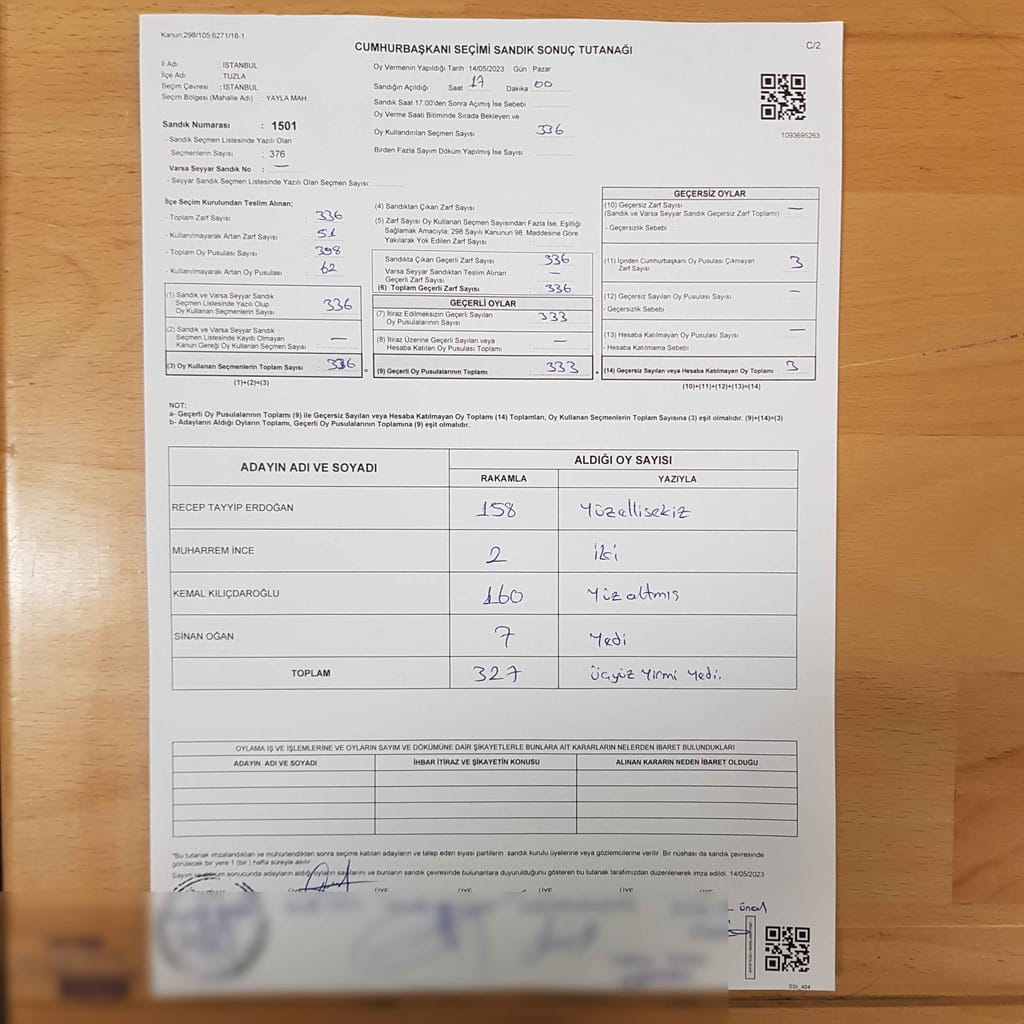 Kanun.298/105.6271/18-1
CUMHURBAŞKANI SEÇİMİ SANDIK SONUÇ TUTANAĞI
C/2
İl Adı : İSTANBUL
İlçe Adı : TUZLA
Seçim Çevresi : İSTANBUL
Seçim Bölgesi (Mahalle Adı) : YAYLA MAH.
Sandık Numarası : 1501
- Sandık Seçmen Listesinde Yazılı Olan
Seçmenlerin Sayısı : 376
Varsa Seyyar Sandık No : —
- Seyyar Sandık Seçmen Listesinde Yazılı Olan Seçmen Sayısı:
Oy Vermenin Yapıldığı Tarih :14/05/2023 Gün : Pazar
Sandığın Açıldığı Saat 17 Dakika 00
Sandık Saat 17.00'den Sonra Açımış İse Sebebi
Oy Verme Saati Bitiminde Sırada Bekleyen ve
Oy Kullandırılan Seçmen Sayısı 336
Birden Fazla Sayım Döküm Yapılmış İse Sayısı
1093695263
İlçe Seçim Kurulundan Teslim Alınan;
- Toplam Zarf Sayısı : 336
- Kullanılmayarak Artan Zarf Sayısı : 51
- Toplam Oy Pusulası Sayısı : 398
- Kullanılmayarak Artan Oy Pusulası : 62
(1) Sandık ve Varsa Seyyar Sandık
Seçmen Listesinde Yazılı Olup
Oy Kullanan Seçmenlerin Sayısı : 336
(2) Sandık ve Varsa Seyyar Sandık
Seçmen Listesinde Kayıtlı Olmayan
Kanun Gereği Oy Kullanan Seçmen Sayısı : —
(3) Oy Kullanan Seçmenlerin Toplam Sayısı : 336
(1)+(2)=(3)
=
(4) Sandıktan Çıkan Zarf Sayısı
(5) Zarf Sayısı Oy Kullanan Seçmen Sayısından Fazla İse, Eşitliği
Sağlamak Amacıyla; 298 Sayılı Kanunun 98. Maddesine Göre
Yakılarak Yok Edilen Zarf Sayısı
Sandıkta Çıkan Geçerli Zarf Sayısı 336
Varsa Seyyar Sandıktan Teslim Alınan
Geçerli Zarf Sayısı —
(6) Toplam Geçerli Zarf Sayısı 336
GEÇERLİ OYLAR
(7) İtiraz Edilmeksizin Geçerli Sayılan
Oy Pusulalarının Sayısı 333
(8) İtiraz Üzerine Geçerli Sayılan veya
Hesaba Katılan Oy Pusulası Toplamı —
(9) Geçerli Oy Pusulalarının Toplamı 333
+
GEÇERSİZ OYLAR
(10) Geçersiz Zarf Sayısı —
(Sandık ve Varsa Seyyar Sandık Geçersiz Zarf Toplamı)
- Geçersizlik Sebebi :
(11) İçinden Cumhurbaşkanı Oy Pusulası Çıkmayan
Zarf Sayısı 3
(12) Geçersiz Sayılan Oy Pusulası Sayısı —
- Geçersizlik Sebebi:
(13) Hesaba Katılmayan Oy Pusulası Sayısı —
- Hesaba Katılmama Sebebi :
(14) Geçersiz Sayılan veya Hesaba Katılmayan Oy Toplamı 3
(10)+(11)+(12)+(13)=(14)
NOT:
a- Geçerli Oy Pusulalarının Toplamı (9) ile Geçersiz Sayılan veya Hesaba Katılmayan Oy Toplamı (14) Toplamları, Oy Kullanan Seçmenlerin Toplam Sayısına (3) eşit olmalıdır. (9)+(14)=(3)
b- Adayların Aldığı Oyların Toplamı, Geçerli Oy Pusulalarının Toplamına (9) eşit olmalıdır.
ADAYIN ADI VE SOYADI
ALDIĞI OY SAYISI
RAKAMLA YAZIYLA
RECEP TAYYİP ERDOĞAN 158 Yüzellisekiz
MUHARREM İNCE 2 iki
KEMAL KILIÇDAROĞLU 160 Yüz altmış
SİNAN OĞAN 7 Yedi
TOPLAM 327 Üçyüz Yirmi Yedi.
OYLAMA İŞ VE İŞLEMLERİNE VE OYLARIN SAYIM VE DÖKÜMÜNE DAİR ŞİKAYETLERLE BUNLARA AİT KARARLARIN NELERDEN İBARET BULUNDUKLARI
ADAYIN ADI VE SOYADI İHBAR İTİRAZ VE ŞİKAYETİN KONUSU ALINAN KARARIN NEDEN İBARET OLDUĞU
"Bu tutanak imzalandıktan ve mühürlendikten sonra seçime katılan adayların ve talep eden siyasi partilerin sandık kurulu üyelerine veya gözlemcilerine verilir. Bir nüshası da sandık çevresinde
görülecek bir yere 1 (bir ) hafta süreyle asılır.
Sayım ve döküm sonucunda adayların aldığı oyların sayılarını ve bunların sandık çevresinde bulunanlara duyurulduğunu gösteren bu tutanak tarafımızdan düzenlenerek imza edildi. 14/05/2023
ÜYE ÜYE ÜYE ÜYE ÜYE
Ünal
SSI_404